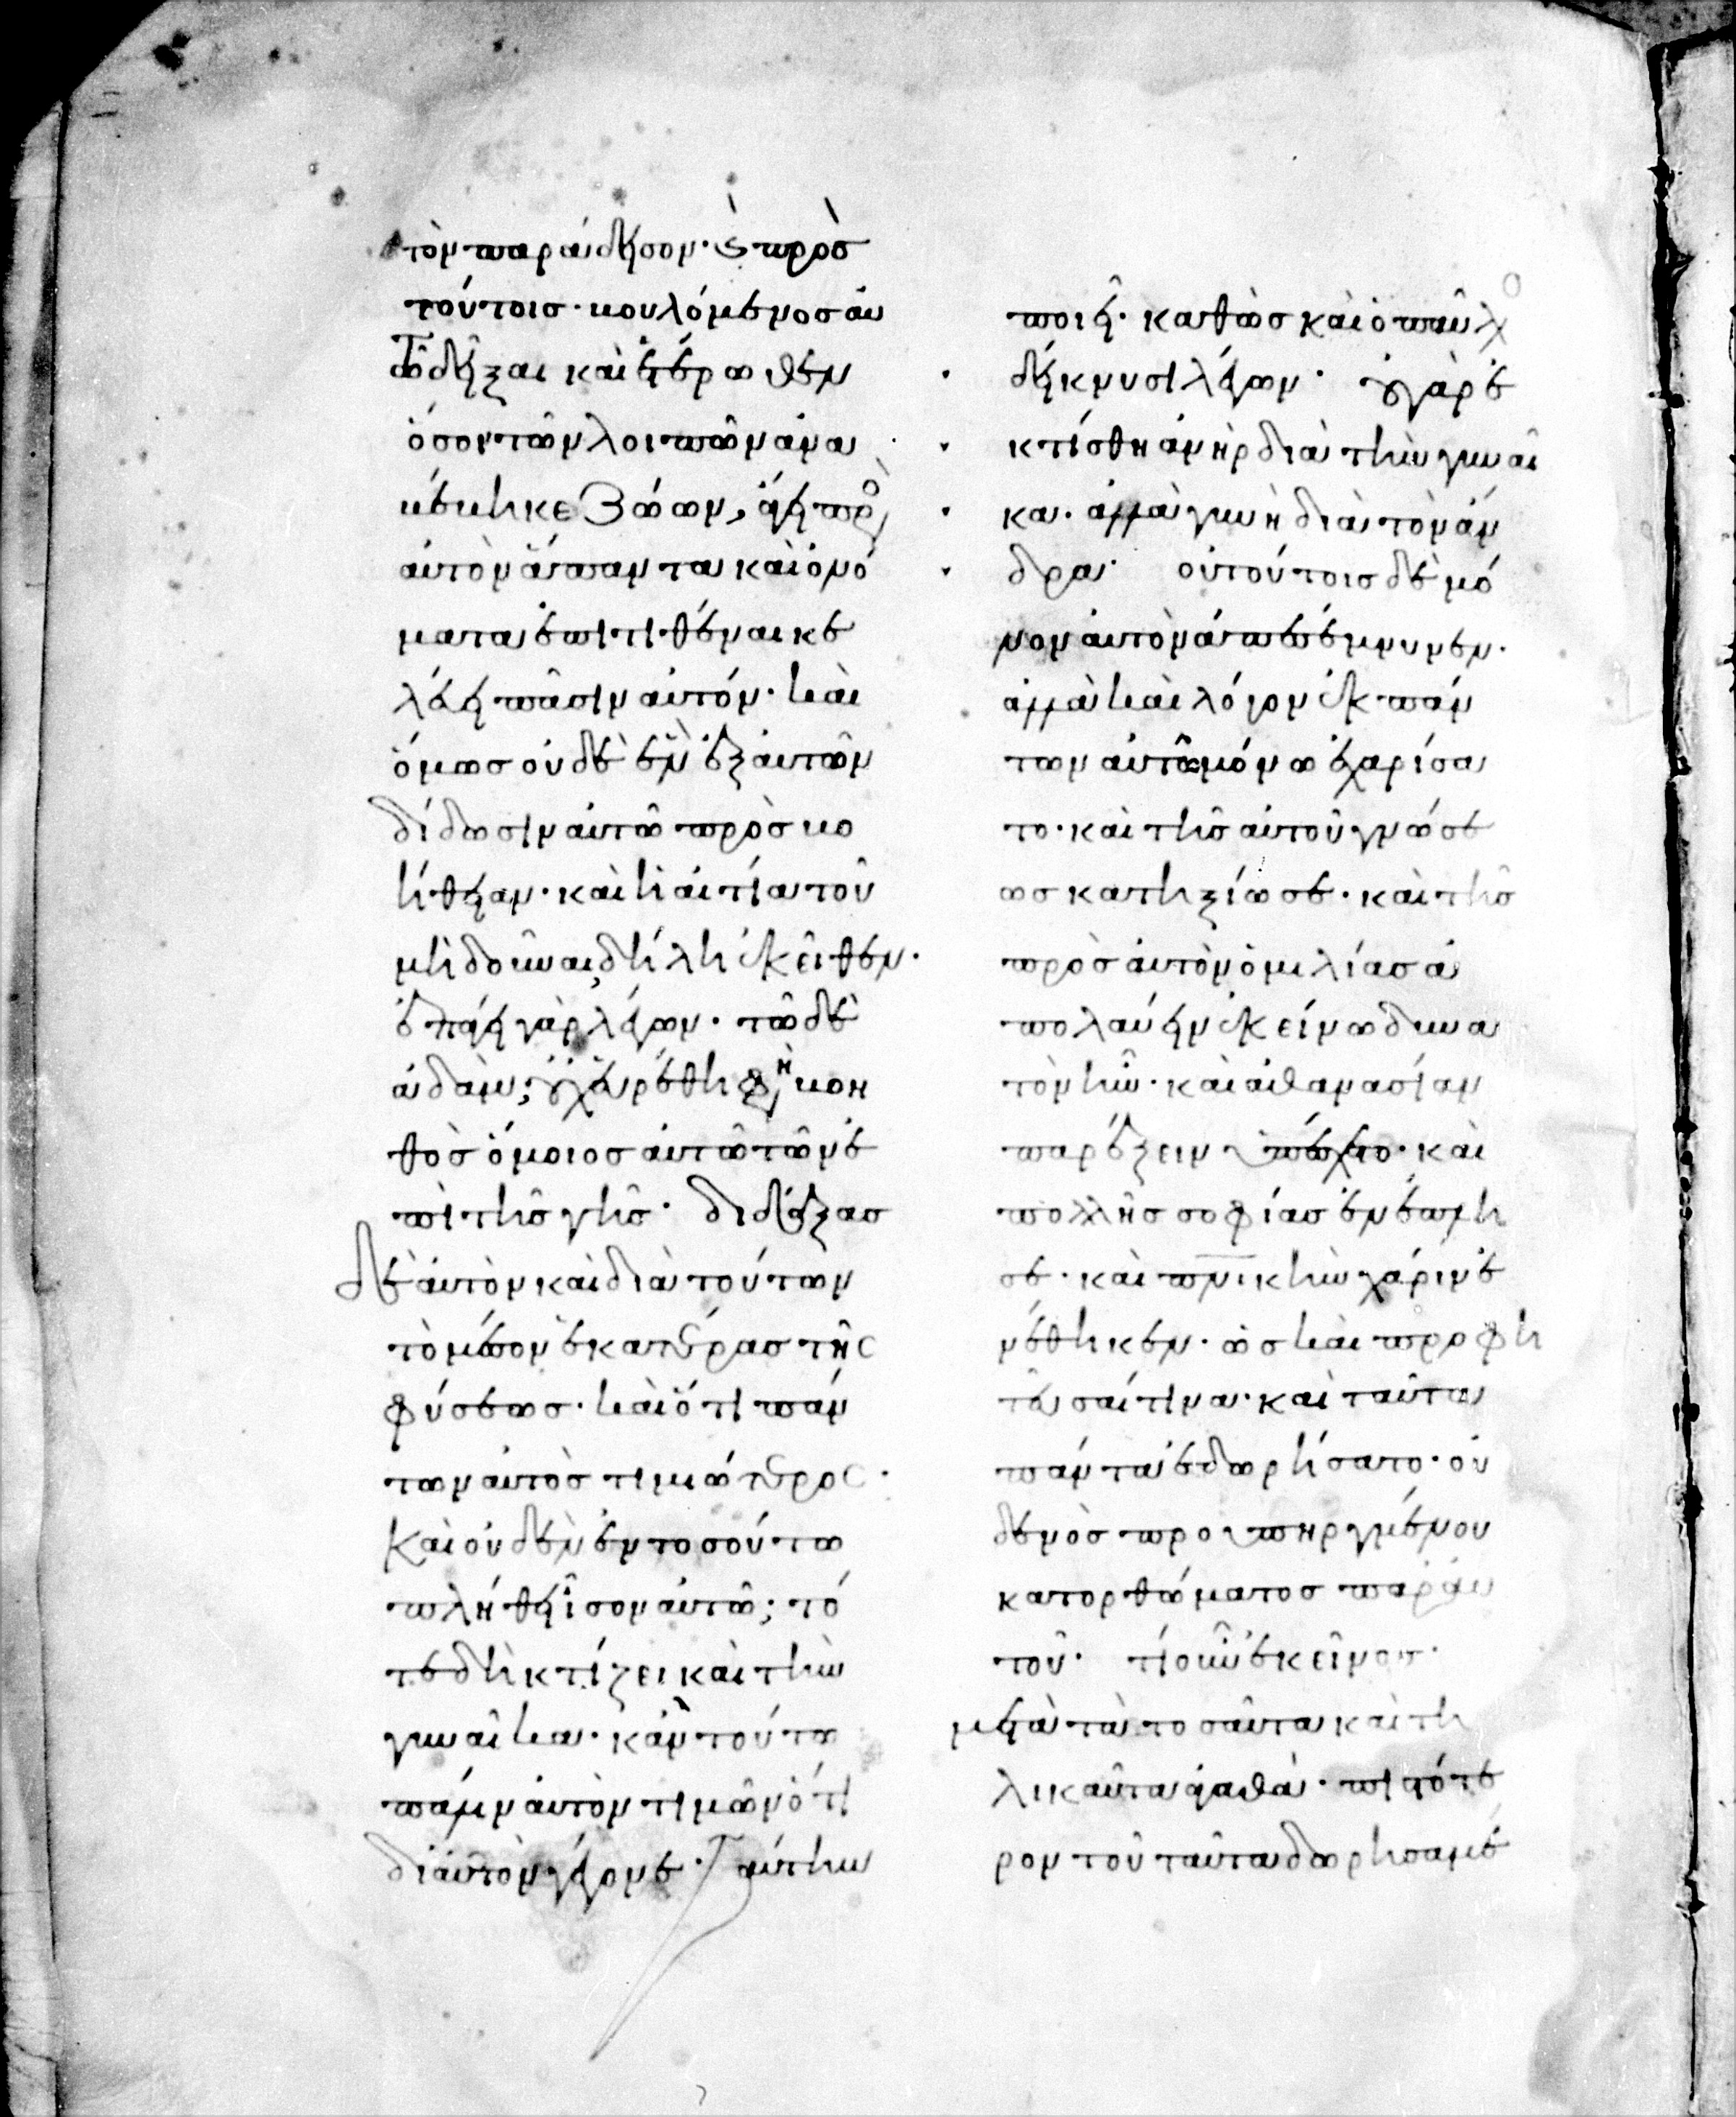 τὸν παράδεισον· καὶ πρὸς
τούτοις· βουλόμενος αυ
τῶ δεῖξαι καὶ ἑτέρωθεν
ὅσον τῶν λοιπῶν ἀνα
βέβηκε ζώων, ἄγει πρὸς
αὐτὸν ἅπαντα καὶ ὀνό
ματα ἐπιτιθέναι κε
λεύει πᾶσιν αὐτόν· καὶ
ὅμως οὐδὲ ἓν ἐξ αὐτῶν
δίδωσιν αὐτῶ πρὸς βο
ήθειαν· καὶ ἡ αἰτία τοῦ
μὴ δοῦναι, δήλη ἐκεῖθεν·
ἐπάγει γὰρ λέγων· τῶ δὲ
ἀδὰμ, οὐχ εὑρέθη φησὶ βοη
θὸς ὅμοιος αὐτῶ τῶν ἐ
πὶ τῆς γῆς· διδάξας
δὲ αὐτὸν καὶ διὰ τούτων
τὸ μέσον ἑκατέρας τῆς
φύσεως· καὶ ὅτι πάν
των αὐτὸς τιμιώτερος·
Καὶ οὐδὲν ἐν τοσούτω
πλήθει ἴσον αὐτῶ; τό
τε δὴ κτίζει καὶ τὴν
γυναῖκα· κἂν τούτω
πάλιν αὐτὸν τιμῶν ὅτι
δι αὐτὸν γέγονε· ταύτην
ποιεῖ· καθὼς καὶ ὁ παῦλος
δείκνυσι λέγων· οὐ γὰρ ἐ
κτίσθη ἀνὴρ διὰ τὴν γυναῖ
κα· ἀλλὰ γυνὴ διὰ τὸν ἄν
δρα· οὐ τούτοις δὲ μό
νον αὐτὸν ἀπεσέμνυνεν·
ἀλλὰ καὶ λόγον ἐκ πάν
των αὐτῶ μόνω ἐχαρίσα
το· καὶ τῆς αὐτοῦ γνώσε
ως κατηξίωσε· καὶ τῆς
πρὸς αὐτὸν ὁμιλίας ἀ
πολαύειν ἐκείνω δυνα
τὸν ἦν· καὶ ἀθανασίαν
παρέξειν ὑπέσχετο· καὶ
πολλῆς σοφίας ἐνέπλη
σε· καὶ πνικὴν χάριν ἐ
νέθηκεν· ὡς καὶ προφη
τεῦσαί τινα· καὶ ταῦτα
πάντα ἐδωρήσατο· οὐ
δενὸς προϋπηργμένου
κατορθώματος παρ αυ
τοῦ· τί οὖν ἐκεῖνος·
μετὰ τὰ τοσαῦτα καὶ τη
λικαῦτα ἀγαθὰ· πιστότε
ρον τοῦ ταῦτα δωρησαμέ